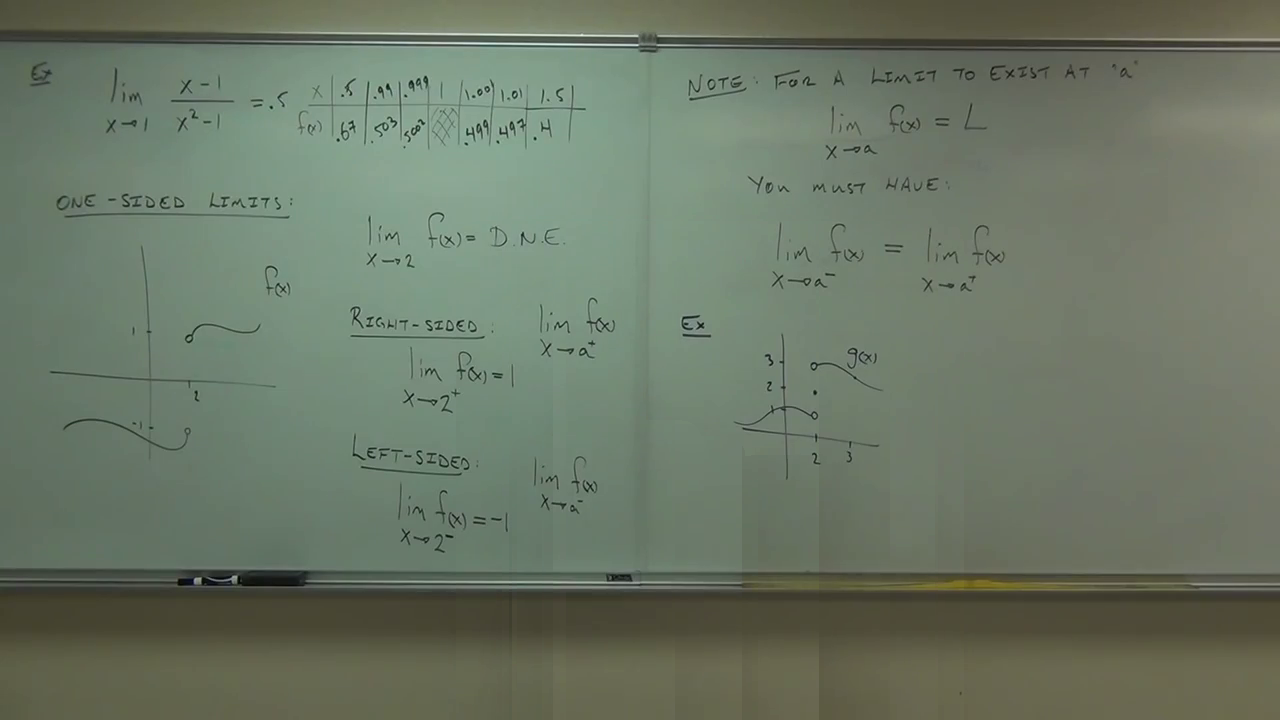 Ex
lim x→1 x-1 / x²-1 = .5
x | .5 | .99 | .999 | 1 | 1.001 | 1.01 | 1.5
f(x) | .67 | .503 | .5002 | | .499 | .497 | .4
ONE-SIDED LIMITS:
f(x)
1
2
-1
lim x→2 f(x) = D.N.E.
RIGHT-SIDED: lim x→a⁺ f(x)
lim x→2⁺ f(x) = 1
LEFT-SIDED: lim x→a⁻ f(x)
lim x→2⁻ f(x) = -1
NOTE: FOR A LIMIT TO EXIST AT "a"
lim x→a f(x) = L
YOU MUST HAVE:
lim x→a⁻ f(x) = lim x→a⁺ f(x)
Ex
g(x)
3
2
1
2 3